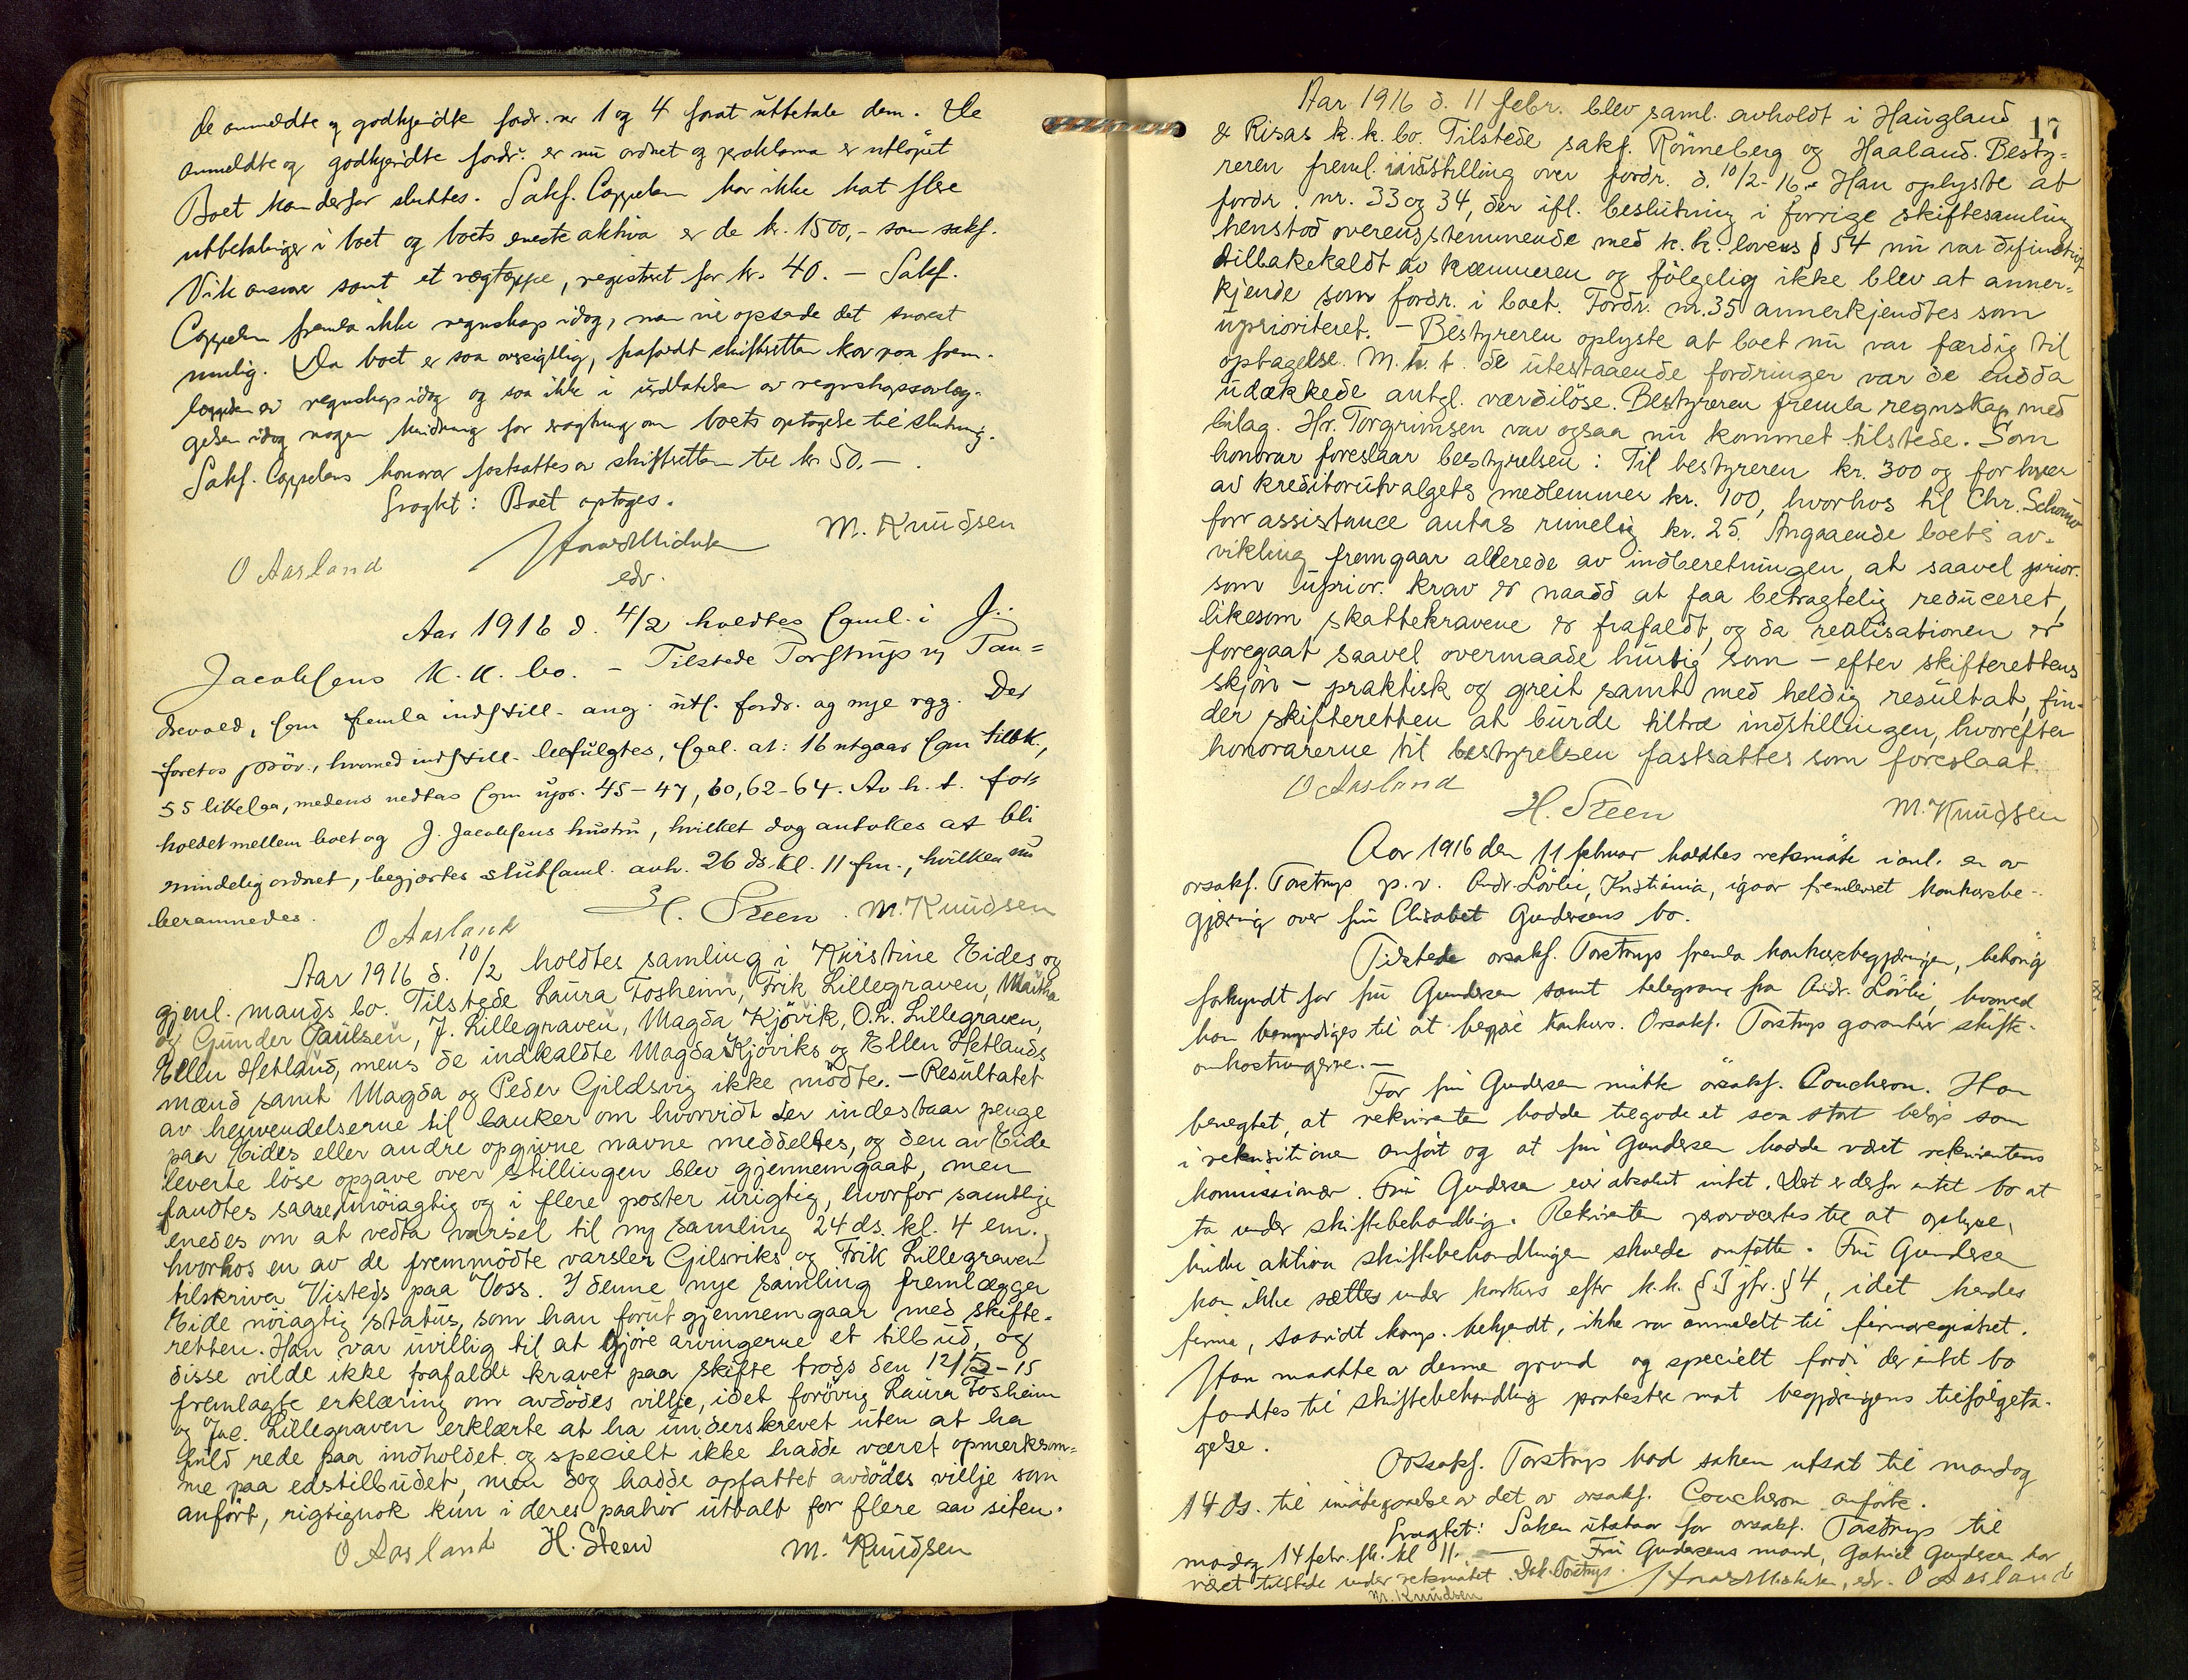 de anmeldte og godkjendte fordr. nr 1 og 4 forat utbetale dem. De
anmeldte og godkjendte fordr. er nu ordnet og proklama er utløpet
Boet kan derfor sluttes. Sakf. Coppelen har ikke hat flere
utbetalinger i boet og boets eneste aktiva er de kr. 1500,- som sakf.
Vik ansvar samt et vægtæppe, registreret for kr. 40. - Sakf.
Coppelen fremla ikke regnskap idag, man vil opsende det snarest
mulig. Da boet er saa oversigtlig, frafaldt skifteretten krav paa frem-
læggelse av regnskap idag og saa ikke i undlatelsen av regnskapsavlæg-
gelsen idag nogen hindring for avsigtning om boets optagelse til slutning.
Sakf. Coppelens honorar fastsattes av skifteretten til kr 50.-.
Eragtet: Boet optages.
O Aasland M. Knudsen
edv.
Aar 1916 d. 4/2 holdtes saml. i J.
Jacobsens k.k. bo. - Tilstede Torstrup og Tan=
drevold, som fremla indstill. ang. uts. fordr. og nye rgg. Der
foretos prøv., hvorved indstill. befulgtes, saal. at: 16 utgaar som tilbk.,
55 likesaa, medens vedtas som upr. 45-47, 60, 62-64. Av h. t. for-
holdet mellem boet og J. Jacobsens hustru, hvilket dog antokes at bli
mindelig ordnet, begjærtes slutsaml. anh. 26 ds. kl. 11 fm., hvilken nu
berammedes.
O Aasland H. Steen. M. Knudsen
Aar 1916 d. 10/2 holdtes samling i Kristine Eides og
gjenl. mands bo. Tilstede Laura Fosheim, Erik Lillegraven, Martha
og Gunder Paulsen, J. Lillegraven, Magda Kjøvik, O. L. Lillegraven,
Ellen Hetland, mens de indkaldte Magda Kjøviks og Ellen Hetlands
mænd samt Magda og Peder Gildsvig ikke mødte. - Resultatet
av henvendelserne til banker om hvorvidt der indestaar penge
paa Eides eller andre opgivne navne meddeltes, og den av Eide
leverte løse opgave over stillingen blev gjennemgaat, men
fandtes saare unøiagtig og i flere poster urigtig, hvorfor samtlige
enedes om at vedta varsel til ny samling 24 ds. kl. 4 em.,
hvorhos en av de fremmødte varsler Gilsviks og Erik Lillegraven
tilskriver Visteds paa Voss. I denne nye samling fremlægger
Eide nøiagtig status, som han forut gjennemgaar med skifte-
retten. Han var uvillig til at gjøre arvingerne et tilbud, og
disse vilde ikke frafalde kravet paa skifte trods den 12/12-15
fremlagte erklæring om avdødes vilje, idet forøvrig Laura Fosheim
og Jac. Lillegraven erklærte at ha underskrevet uten at ha
fuld rede paa indholdet og specielt ikke hadde været opmerksom=
me paa edstilbudet, men dog hadde opfattet avdødes vilje som
anført, rigtignok kun i deres paahør uttalt for flere aar siden.
O Aasland H. Steen M. Knudsen
17
Aar 1916 d. 11 febr. blev saml. avholdt i Haugland
& Risas k. k. bo. Tilstede sakf. Rönneberg og Haaland. Besty=
reren freml. indstilling over fordr. d. 10/2-16. Han oplyste at
fordr. nr. 33 og 34, der ifl. beslutning i forrige skiftesamling
henstod overensstemmende med k. k. lovens § 54 nu var definitivt
tilbakekaldt av kæmneren og følgelig ikke blev at anner=
kjende som fordr. i boet. Fordr. nr. 35 annerkjendtes som
uprioriteret. - Bestyreren oplyste at boet nu var færdig til
optagelse. M. h. t. de utestaaende fordringer var de endda
udækkede antgl. værdiløse. Bestyreren fremla regnskap med
bilag. Hr. Torgrimsen var ogsaa nu kommet tilstede. Som
honorar foreslaar bestyrelsen: Til bestyreren kr. 300 og for hver
av kreditorutvalgets medlemmer kr. 100, hvorhos til Chr.
for assistance antas rimelig kr. 25. Angaaende boets av-
vikling fremgaar allerede av indberetningen, at saavel prior.
som uprior. krav er naadd at faa betragtelig reduceret,
likesom skattekravene er frafaldt, og da realisationen er
foregaat saavel overmaade hurtig som - efter skifterettens
skjøn - praktisk og greit samt med heldig resultat, fin-
der skifteretten at burde tiltræ indstillingen, hvorefter
honorarerne til bestyrelsen fastsattes som foreslaat.
O Aasland H. Steen M. Knudsen
Aar 1916 den 11 februar holdtes retsmøte i anl. en av
orsakf. Torstrup p. v. Andr. Løvlie, Kristiania, igaar fremlevert konkursbe-
gjæring over fru Elisabet Gundersens bo.
Tilstede orsakf. Torstrup fremla konkursbegjæringen, behørig
forkyndt for fru Gundersen samt telegram fra Andr. Løvlie, hvorved
han bemyndiges til at begjære konkurs. Orsakf. Torstrup garanterer skifte-
omkostningerne. -
For fru Gundersen møtte orsakf. Coucheron. Han
benegtet, at rekvirenten hadde tilgode et saa stort beløp som
i rekvisitionen anført og at fru Gundersen hadde været rekvirentens
kommissionær. Fru Gundersen eier absolut intet. Det er derfor intet bo at
ta under skiftebehandling. Rekvirenten provocertes til at oplyse,
hvilke aktiva skiftebehandlingen skulde omfatte. Fru Gundersen
kan ikke sættes under konkurs efter k.k. § 3 jfr. § 4, idet hendes
firma, saavidt komp. bekjendt, ikke var anmeldt til firmaregistret.
Han maatte av denne grund og specielt fordi der intet bo
fandtes til skiftebehandling protestere mot begjæringens tilfølgeta-
gelse.
Orsakf. Torstrup bad saken utsat til mandag
14 ds. til imøtegaaelse av det av orsakf. Coucheron anførte.
Eragtet: Saken utstaar for orsakf. Torstrup til
mandag 14 febr. fk. kl 11. - Fru Gundersens mand, Gabriel Gundersen har
været tilstede under retsmøtet. Torstrup. edv. O Aasland
M. Knudsen